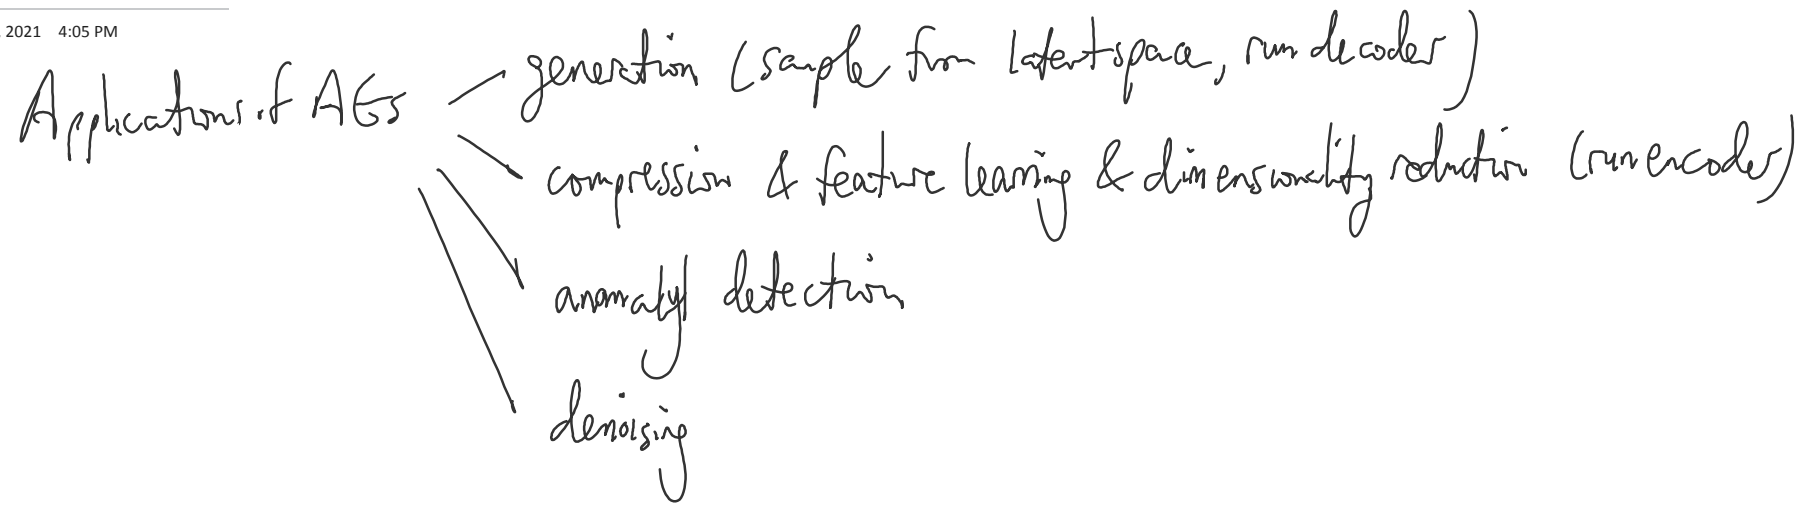 2021 4:05 PM
Applications of AEs
generation (sample from latent space, run decoder)
compression & feature learning & dimensionality reduction (run encoder)
anomaly detection
denoising